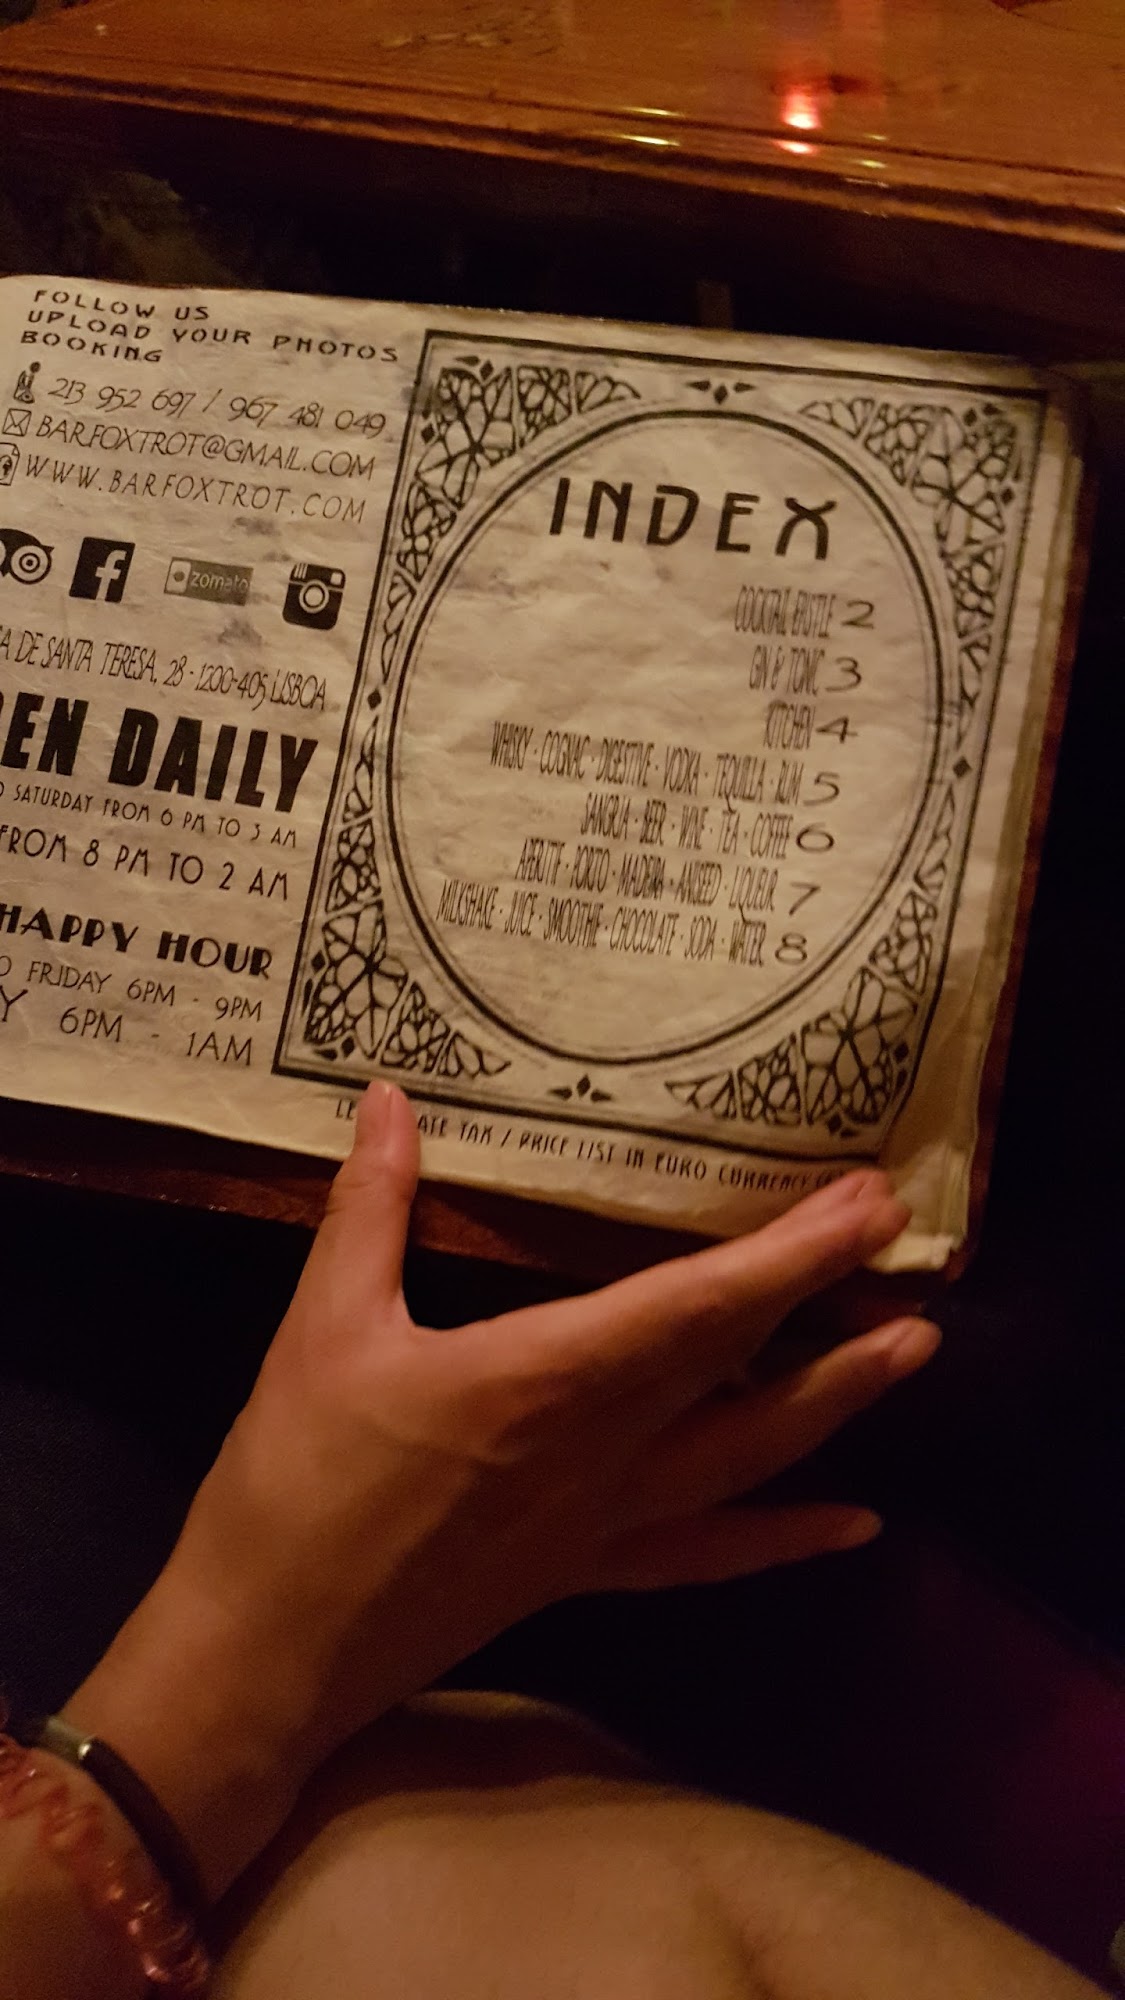 FOLLOW US
UPLOAD YOUR PHOTOS
BOOKING
213 952 697 / 967 481 049
BARFOXTROT@GMAIL.COM
WWW.BARFOXTROT.COM
zomato
DE SANTA TERESA, 28 - 1200-405 LISBOA
EN DAILY
SATURDAY FROM 6 PM TO 3 AM
FROM 8 PM TO 2 AM
HAPPY HOUR
FRIDAY 6PM - 9PM
Y 6PM - 1AM
INDEX
COCKTAIL 2
GIN & TONIC 3
KITCHEN 4
WHISKY · COGNAC · DIGESTIVE · VODKA · TEQUILLA · RUM 5
SANGRIA · BEER · WINE · TEA · COFFEE 6
APERITIF · PORTO · MADEIRA · ANISEED · LIQUEUR 7
MILKSHAKE · JUICE · SMOOTHIE · CHOCOLATE · SODA · WATER 8
ATE TAX / PRICE LIST IN EURO CURRENCY